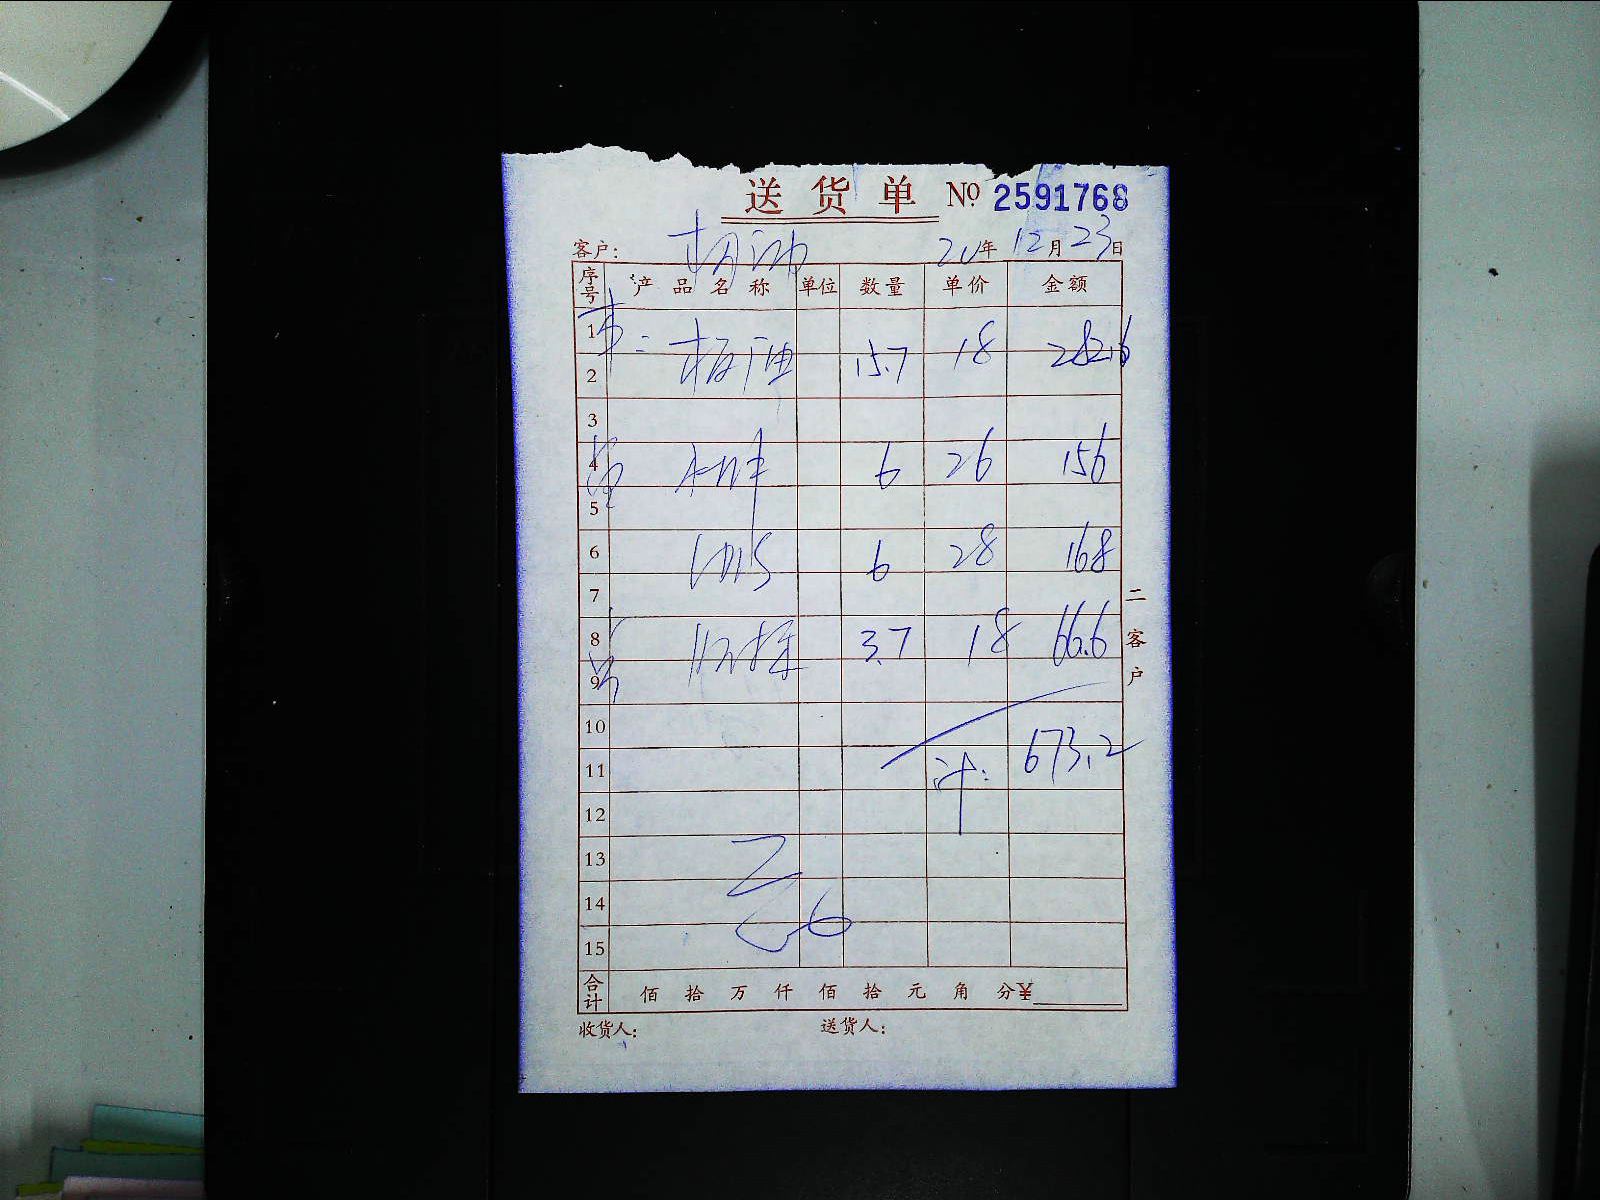 送货单 No 2591768
客户: 20年 12月 23日
序号 产品名称 单位 数量 单价 金额
1
2 板油 15.7 18 282.6
3
4 6 26 156
5
6 6 28 168
7
8 3.7 18 66.6
9
10
11 计: 673.2
12
13
14
15
合计 佰 拾 万 仟 佰 拾 元 角 分 ¥
收货人: 送货人:
二客户